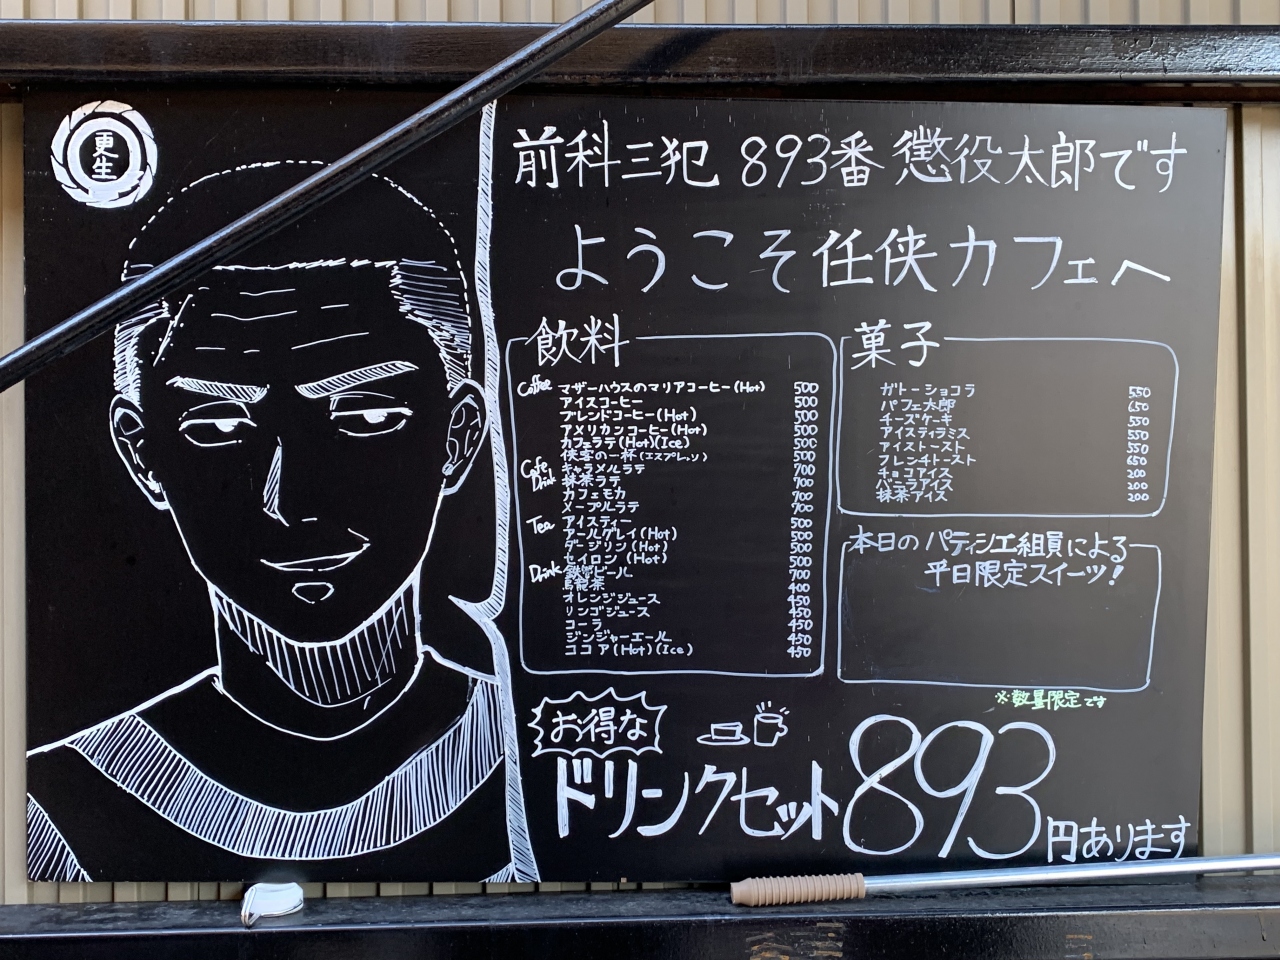 更生
前科三犯 893番 懲役太郎です
ようこそ任侠カフェへ
飲料
Coffee マザーハウスのマリアコーヒー(Hot) 500
アイスコーヒー 500
ブレンドコーヒー(Hot) 500
アメリカンコーヒー(Hot) 500
カフェラテ(Hot)(Ice) 500
侠客の一杯(エスプレッソ) 500
Cafe Drink キャラメルラテ 700
抹茶ラテ 700
カフェモカ 700
メープルラテ 700
Tea アイスティー 500
アールグレイ(Hot) 500
ダージリン(Hot) 500
セイロン(Hot) 500
Drink ビール 700
烏龍茶 400
オレンジジュース 450
リンゴジュース 450
コーラ 450
ジンジャーエール 450
ココア(Hot)(Ice) 450
菓子
ガトーショコラ 550
パフェ太郎 650
チーズケーキ 550
アイスティラミス 550
アイストースト 550
フレンチトースト 650
チョコアイス 200
バニラアイス 200
抹茶アイス 200
本日のパティシエ組員による
平日限定スイーツ!
※数量限定です
お得な
ドリンクセット893円あります